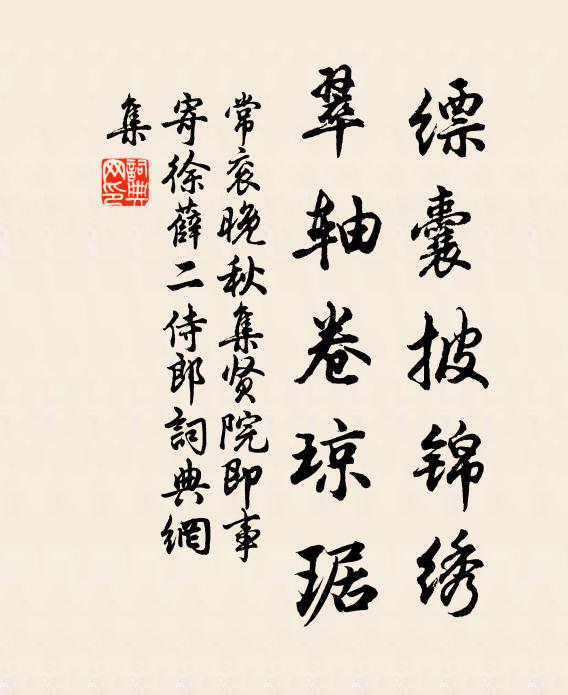 缥囊披锦绣
翠轴卷琼琚
常衮晚秋集贤院即事
寄徐薛二侍郎詞典網
集
詞典網印